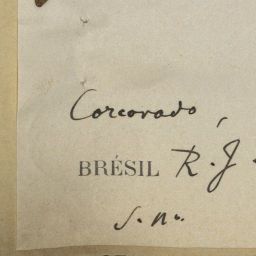 Corcovado,
BRÉSIL R. J.
s. n.